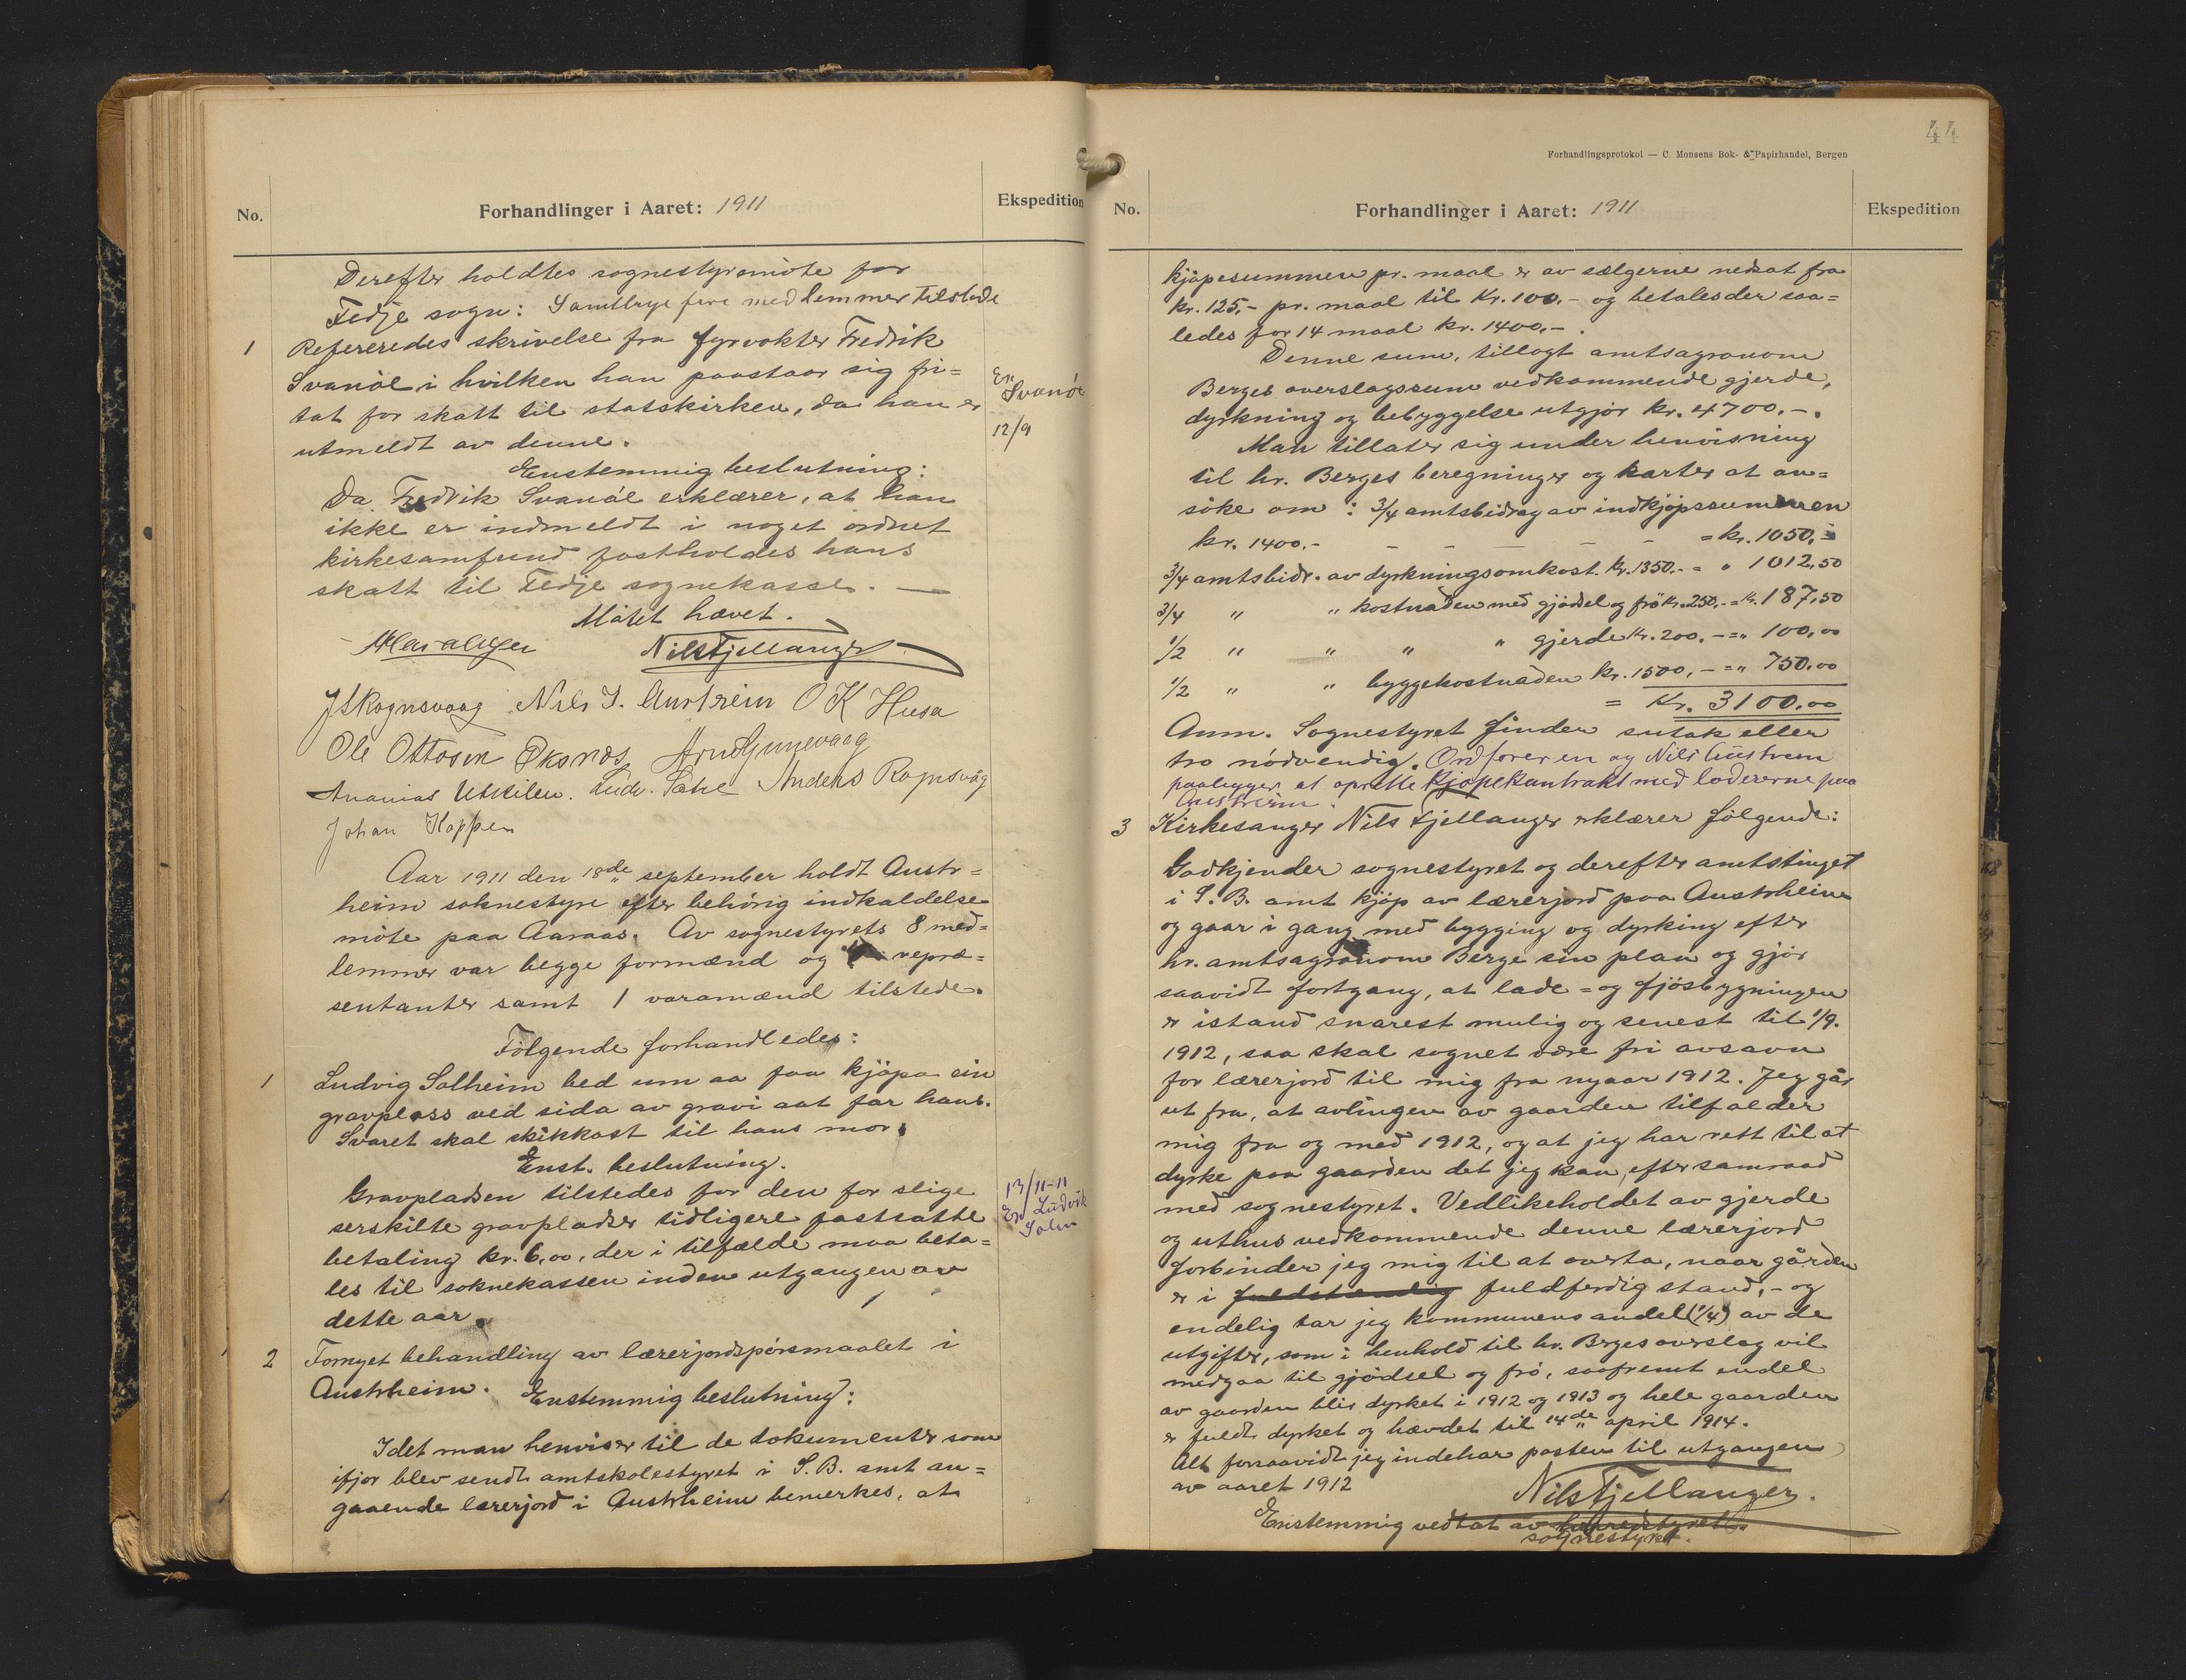 No.
Forhandlinger i Aaret: 1911
Ekspedition
Derefter holdtes sognestyremøte for
Fedje sogn: Samtlige fire medlemmer tilstede
1 Refereredes skrivelse fra fyrvokter Fredrik
Svanöe i hvilken han paastaar sig fri=
tat for skatt til statskirken, da han er
utmeldt av denne.
En Svanöe
12/9
Enstemmig beslutning:
Da Fredrik Svanöe erklærer, at han
ikke er indmeldt i noget ordnet
kirkesamfund fastholdes hans
skatt til Fedje sognekasse.
Møtet hævet.
Nils Fjellanger
J Rognsvaag Nils J. Austreim O K Husa
Ole Ottosen Øksnes Arne Gunnevaag
Ananias Utkilen. Ludv. Sætre Anders Rognsvåg
Johan Hoppen
Aar 1911 den 18de september holdt Austr=
heim soknestyre efter behörig indkaldelse
möte paa Aaraas. Av sognestyrets 8 med=
lemmer var begge formænd og repræ=
sentanter samt 1 varamænd tilstede.
Fölgende forhandledes:
1 Ludvig Solheim bed um aa faa kjöpa ein
gravplass ved sida av gravi aat far hans.
Svaret skal skikkast til hans mor.
Enst. beslutning.
Gravpladsen tilstedes for den for slige
serskilte gravpladser tidligere fastsatte
betaling kr. 6,00, der i tilfælde maa beta=
les til soknekassen inden utgangen av
dette aar.
13/11-11
En Ludvik
Solm
2 Fornyet behandling av lærerjordspörsmaalet i
Austrheim. Enstemmig beslutning:
Idet man henviser til de dokumenter som
ifjor blev sendt amtskolestyret i S.B. amt an=
gaaende lærerjord i Austrheim bemerkes, at
44
Forhandlingsprotokol — C. Monsens Bok- & Papirhandel, Bergen
No.
Forhandlinger i Aaret: 1911
Ekspedition
kjöpesummen pr. maal er av sælgerne nedsat fra
kr. 125,- pr. maal til Kr. 100.- og betales der saa=
ledes for 14 maal kr. 1400,-.
Denne sum, tillagt amtsagronom
Berges overslagssum vedkommende gjerde,
dyrkning og bebyggelse utgjör kr. 4700.-.
Man tillater sig under henvisning
til hr. Berges beregninger og karter at an=
söke om: 3/4 amtsbidrag av indkjöpssummen
kr. 1400,- - - - - - = kr. 1050,-
3/4 amtsbidr. av dyrkningsomkost. kr. 1350.- = " 1012,50
3/4 " " kostnaden med gjödsel og frö kr. 250,- = kr. 187,50
1/2 " " " " gjerde kr. 200.- = " 100,00
1/2 " " byggekostnaden kr. 1500,- = " 750.00
= Kr. 3100,00
Anm. Sognestyret finder sutak eller
tro nödvendig. Ordföreren og Nils Austreim
paalægges at oprette kjöpekontrakt med lodeierne paa
Austreim.
3 Kirkesanger Nils Fjellanger erklærer fölgende:
Godkjender sognestyret og derefter amtstinget
i S.B. amt kjöp av lærerjord paa Austrheim
og gaar i gang med bygging og dyrking efter
hr. amtsagronom Berge sin plan og gjör
saavidt fortgang, at lade- og fjösbygningen
er istand snarest mulig og senest til 1/9.
1912, saa skal sognet være fri avsavn
for lærerjord til mig fra nyaar 1912. Jeg går
ut fra, at avlingen av gaarden tilfalder
mig fra og med 1912, og at jeg har rett til at
dyrke paa gaarden det jeg kan, efter samraad
med sognestyret. Vedlikeholdet av gjerde
og uthus vedkommende denne lærerjord
forbinder jeg mig til at overta, naar gården
er i fuldstændig fuldferdig stand,- og
endelig tar jeg kommunens andel (1/4) av de
utgifter, som i henhold til hr. Berges overslag vil
medgaa til gjödsel og frö, saafremt endel
av gaarden blir dyrket i 1912 og 1913 og hele gaarden
er fuldt dyrket og hævdet til 14de april 1914.
Alt forsaavidt jeg indehar posten til utgangen
av aaret 1912
Nils Fjellanger.
Enstemmig vedtat av herredstyret.
sognestyret.